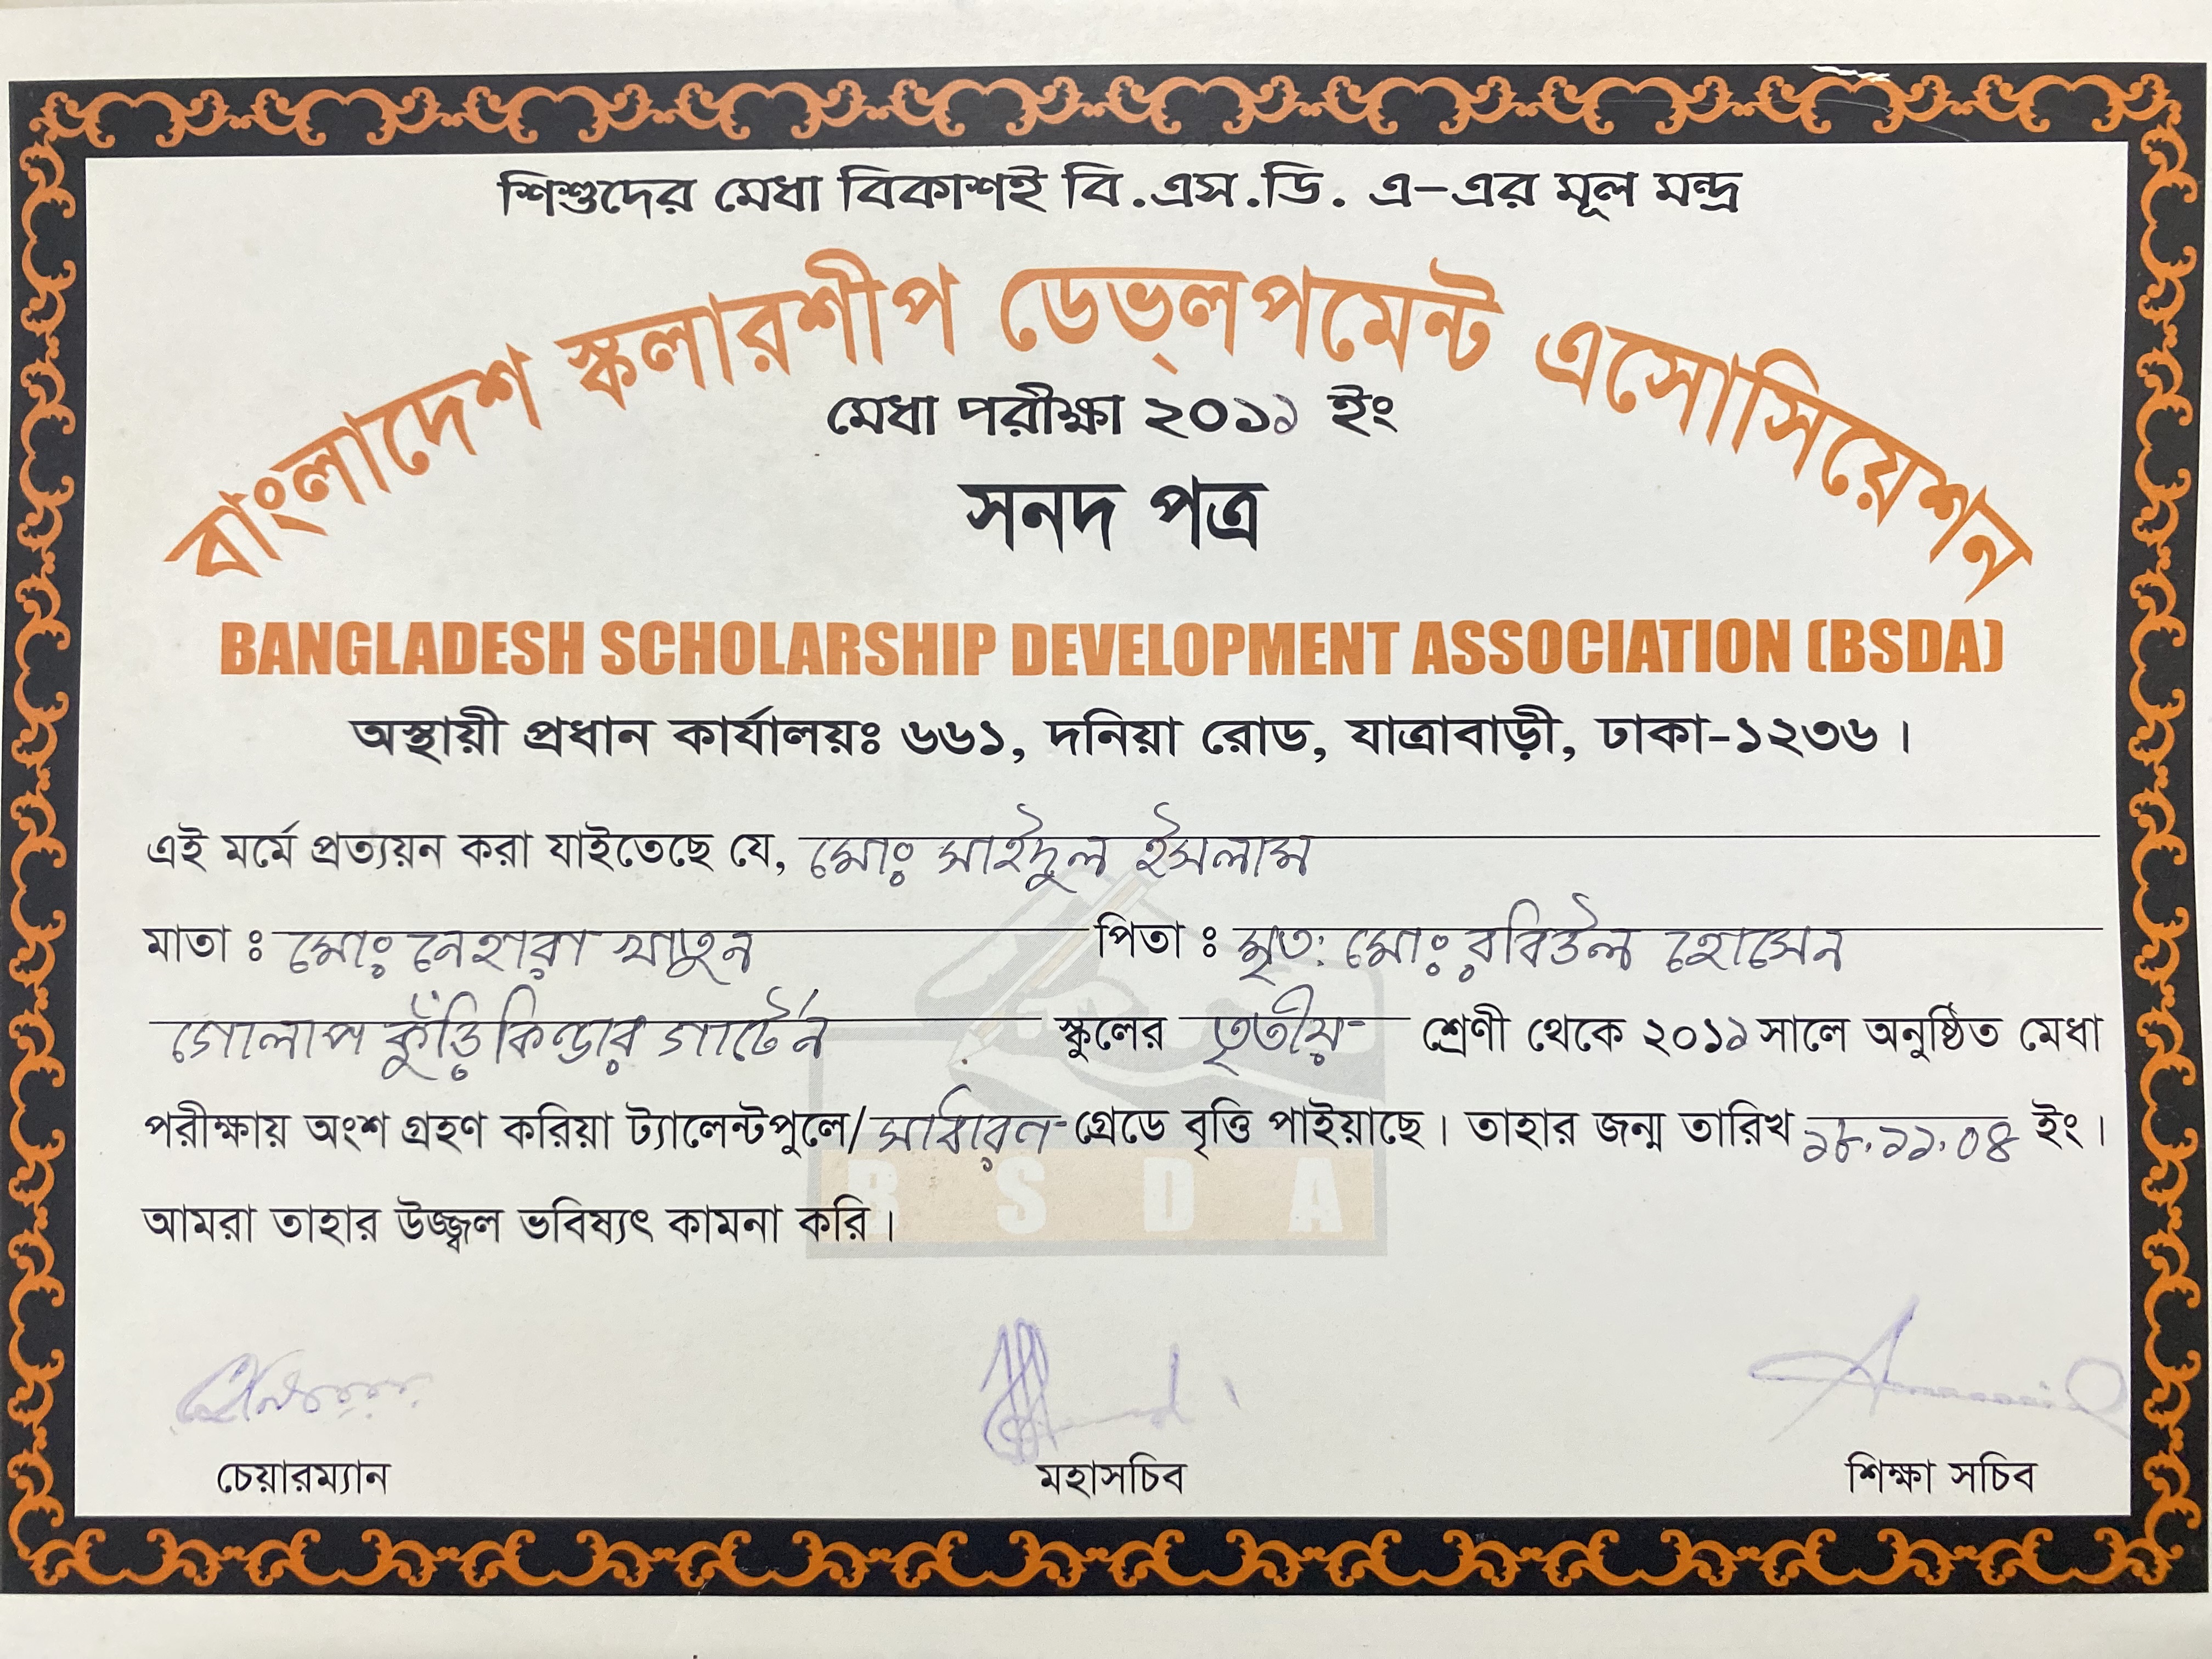 শিশুদের মেধা বিকাশই বি.এস.ডি. এ-এর মূল মন্দ্র
বাংলাদেশ স্কলারশীপ ডেভ্লপমেন্ট এসোসিয়েশন
মেধা পরীক্ষা ২০১১ ইং
সনদ পত্র
BANGLADESH SCHOLARSHIP DEVELOPMENT ASSOCIATION (BSDA)
অস্থায়ী প্রধান কার্যালয়ঃ ৬৬১, দনিয়া রোড, যাত্রাবাড়ী, ঢাকা-১২৩৬।
এই মর্মে প্রত্যয়ন করা যাইতেছে যে, মোঃ সাইদুল ইসলাম
মাতা : মোঃ নেহারা খাতুন পিতা : মৃত: মোঃ রবিউল হোসেন
গোলাপ কুঁড়ি কিন্ডার গার্টেন স্কুলের তৃতীয় শ্রেণী থেকে ২০১১ সালে অনুষ্ঠিত মেধা
পরীক্ষায় অংশ গ্রহণ করিয়া ট্যালেন্টপুলে/সাধারন গ্রেডে বৃত্তি পাইয়াছে। তাহার জন্ম তারিখ ১৮.১১.০৪ ইং।
আমরা তাহার উজ্জ্বল ভবিষ্যৎ কামনা করি।
B S D A
চেয়ারম্যান মহাসচিব শিক্ষা সচিব